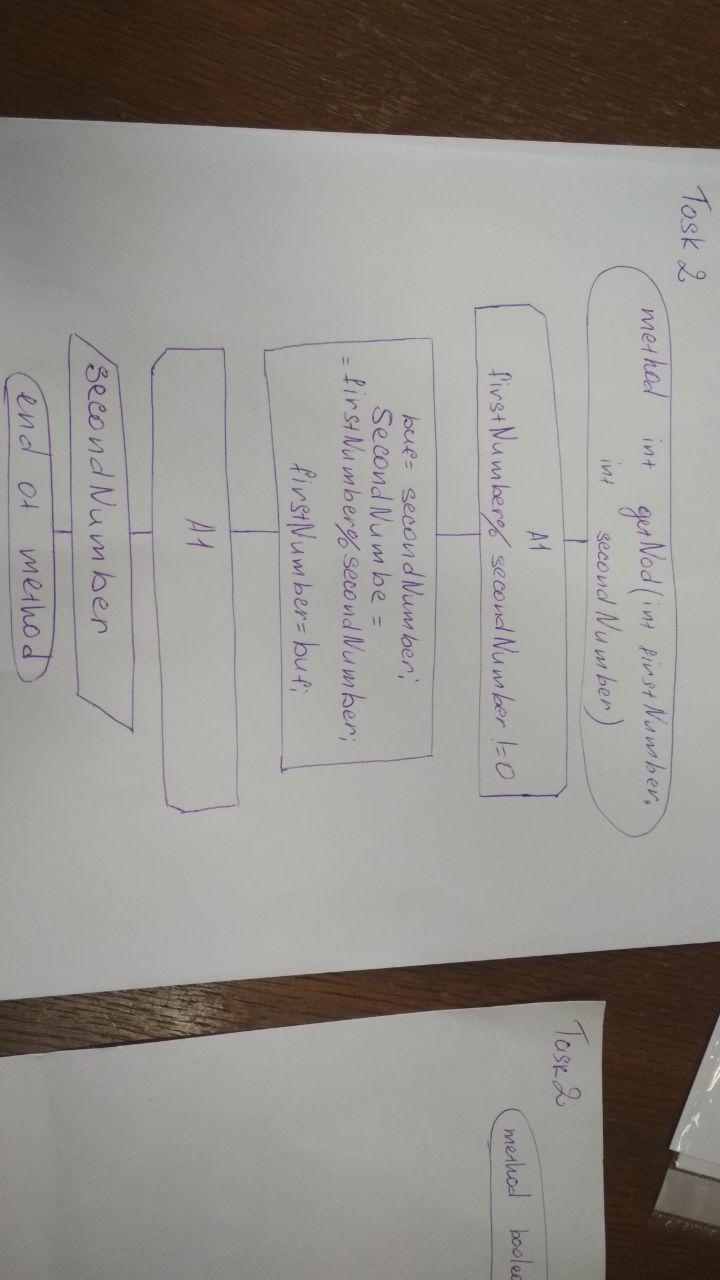 Task 2
method int getNod(int firstNumber,
int secondNumber)
A1
firstNumber%secondNumber!=0
buf=secondNumber;
SecondNumbe=
=firstNumber%secondNumber;
firstNumber=buf;
A1
secondNumber
end of method
Task 2
method boolea